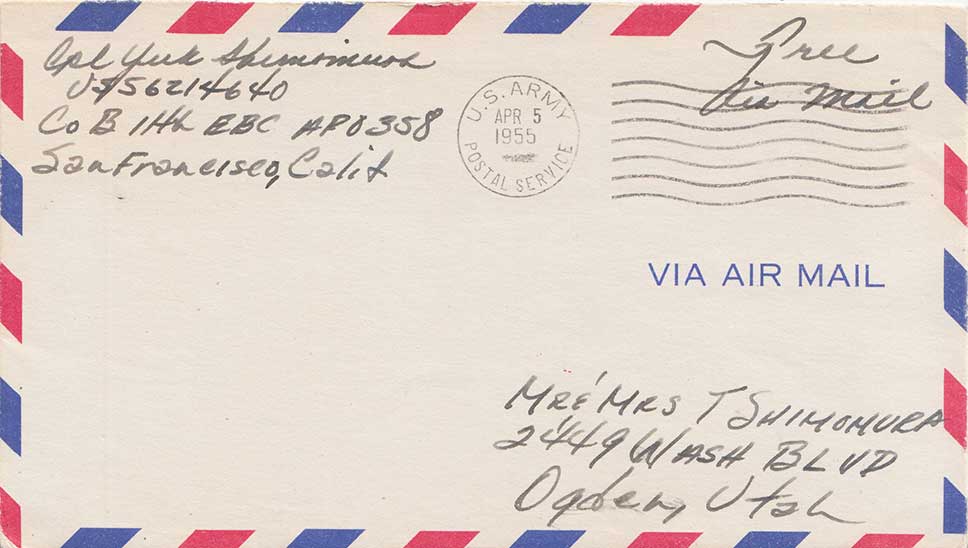 Cpl Yuk Shimomura
US56214640
Co B 14th EBC APO 358
San Francisco, Calif
U.S. ARMY
APR 5
1955
POSTAL SERVICE
Free
Via Mail
VIA AIR MAIL
Mr & Mrs T SHIMOMURA
2449 WASH BLVD
Ogden, Utah